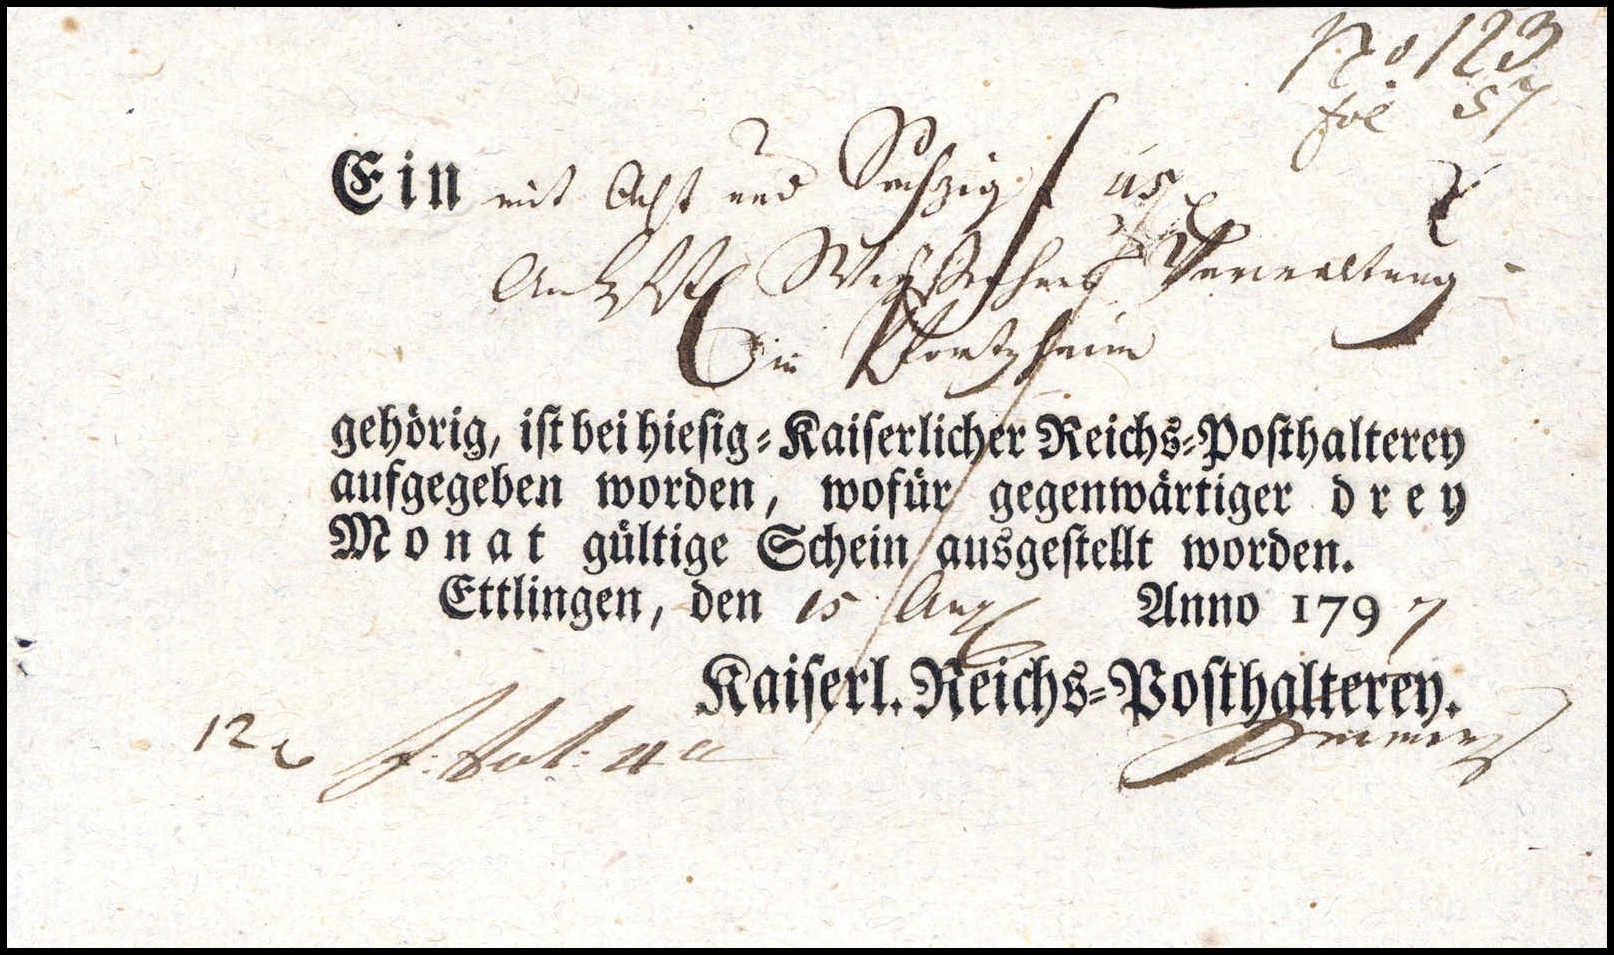 No 123
fol 57
Ein mit Acht und Sechzig f 45 x
Verwaltung
in Pfortzheim
gehörig, iſt bei hieſig-Kaiſerlicher Reichs-Poſthalterey
aufgegeben worden, wofür gegenwärtiger drey
Monat gültige Schein ausgeſtellt worden.
Ettlingen, den 15 Aug Anno 1797
Kaiſerl. Reichs-Poſthalterey.
12